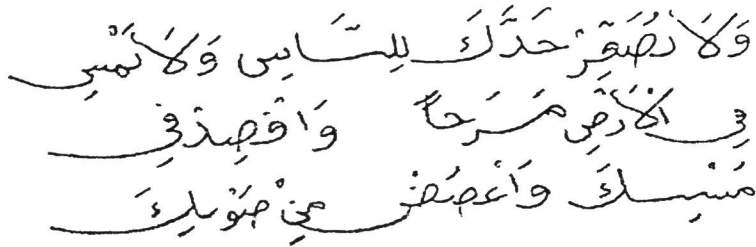 وَلَا تُصَعِّرْ خَدَّكَ لِلنَّاسِ وَلَا تَمْشِ
فِي الْأَرْضِ مَرَحًا وَاقْصِدْ فِي
مَشْيِكَ وَاغْضُضْ مِنْ صَوْتِكَ